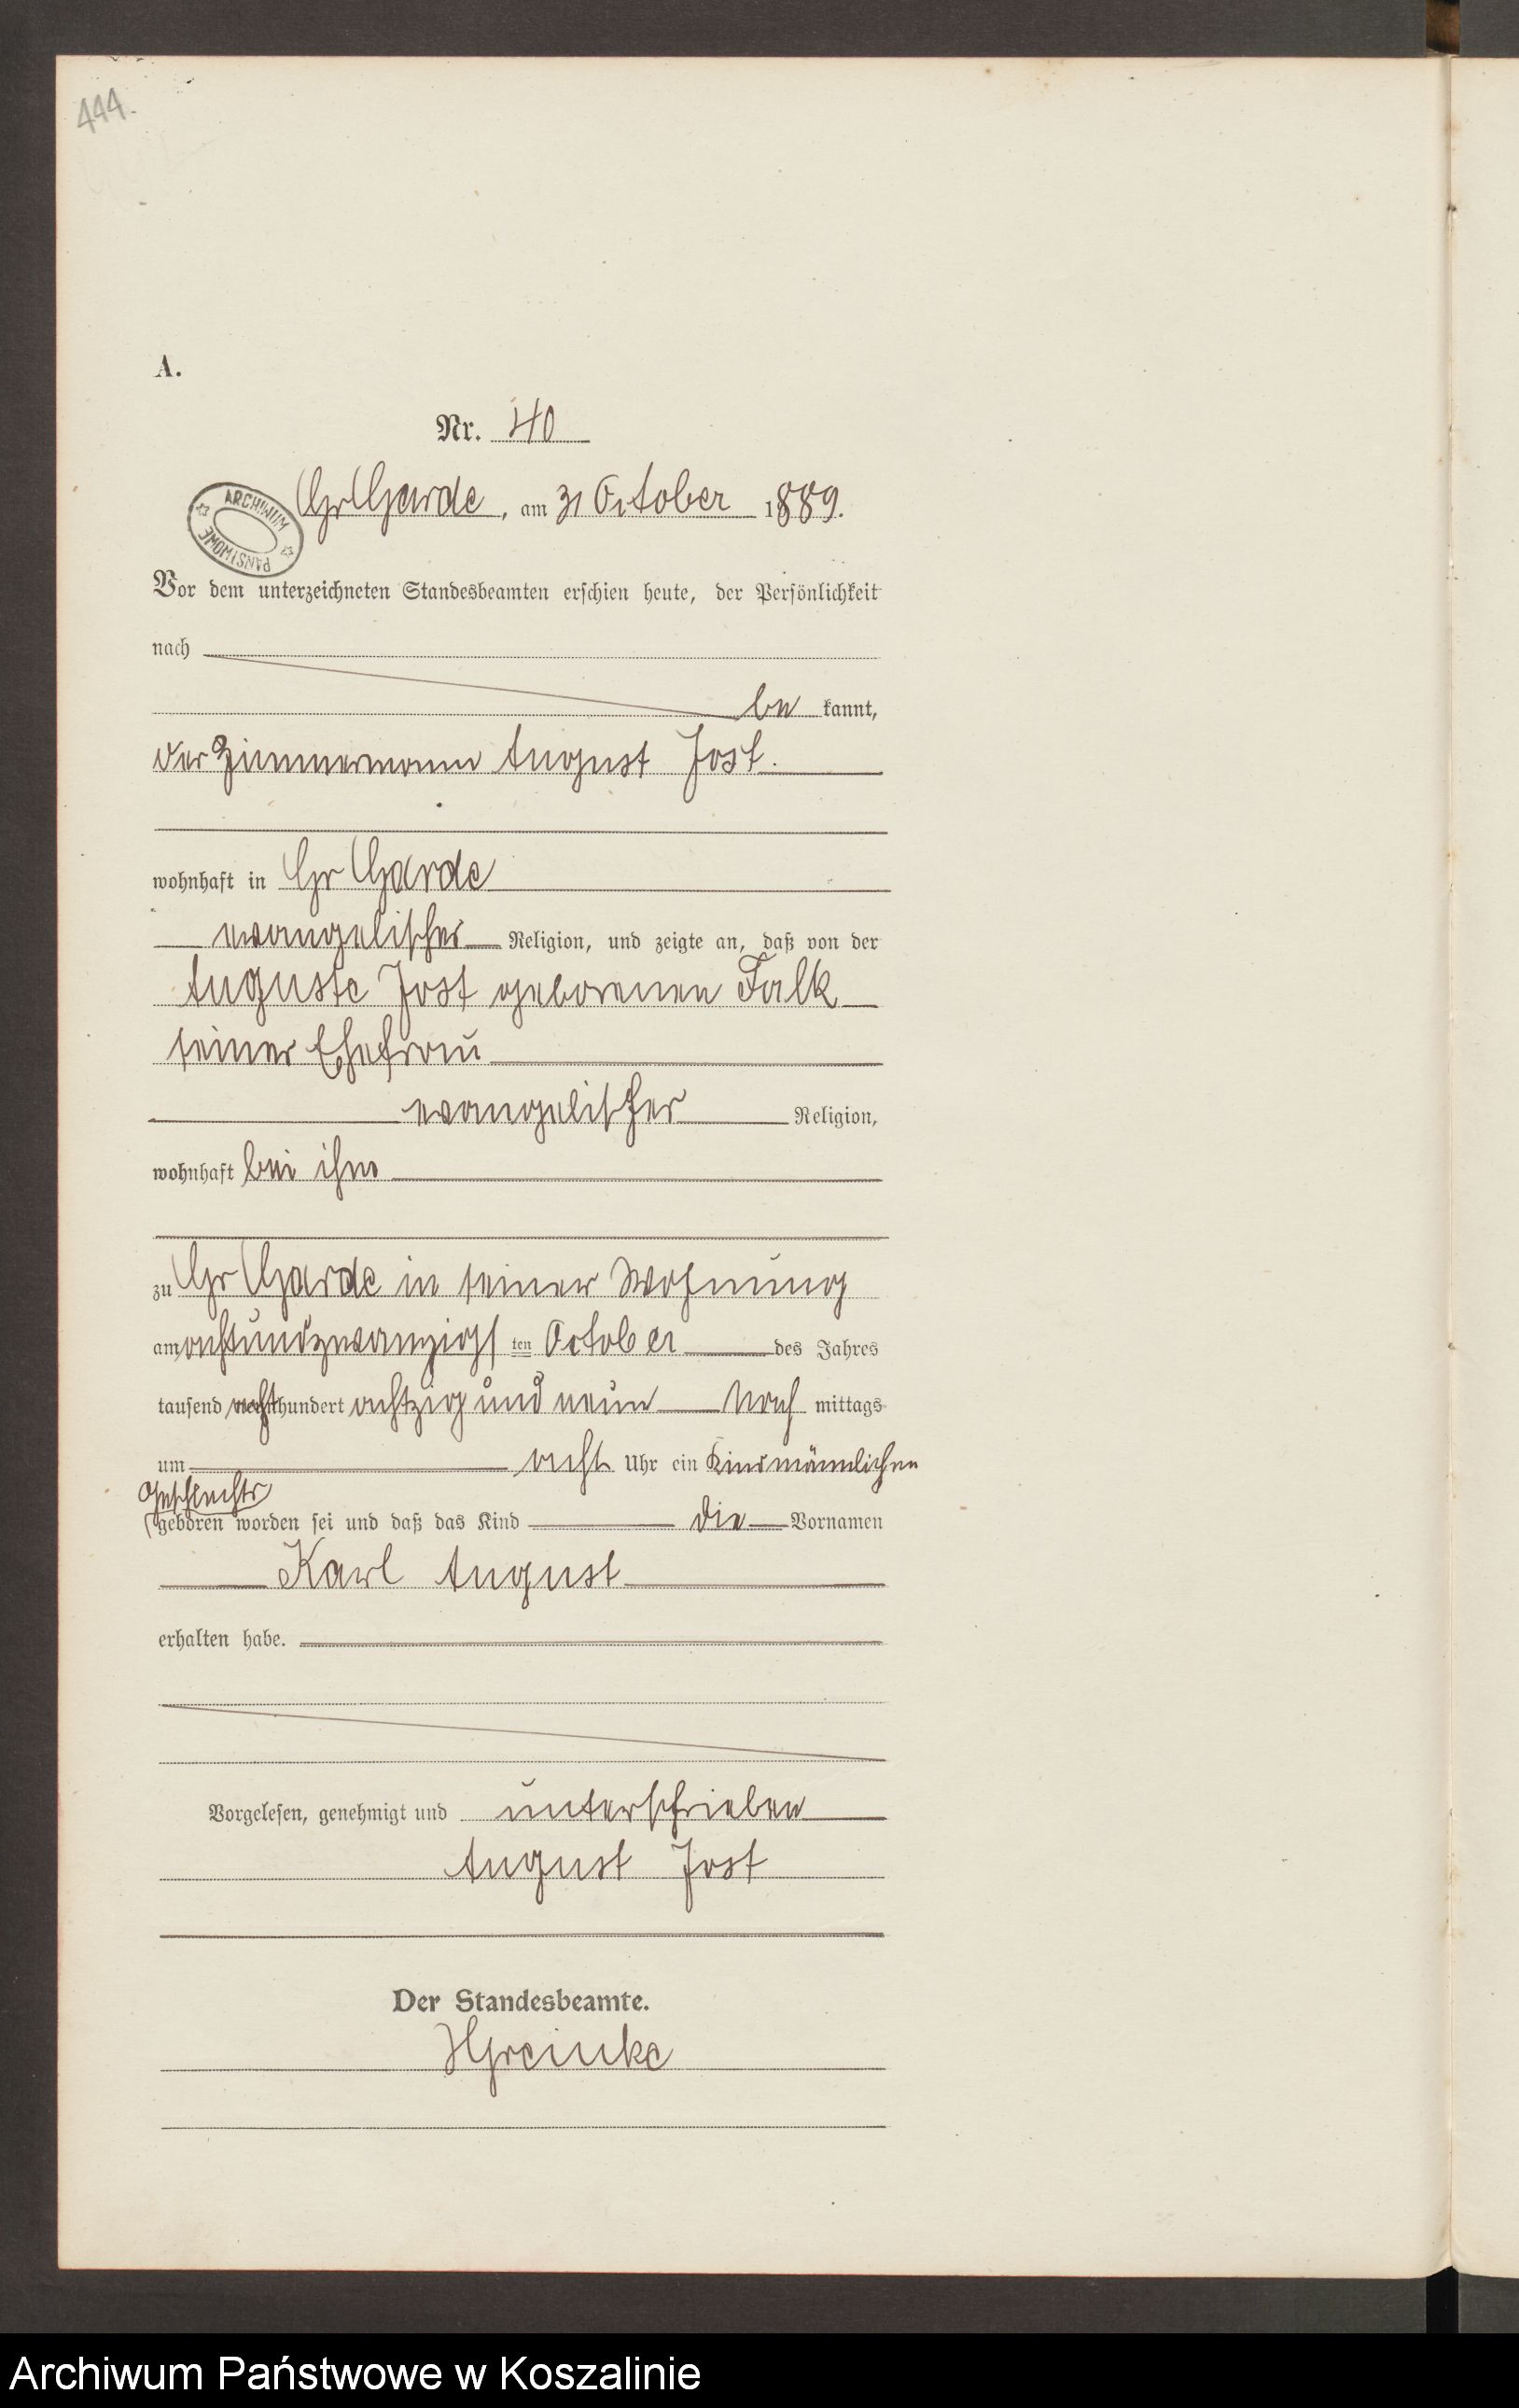 444.
A.
Nr. 40
ARCHIWUM PAŃSTWOWE
Gr Garde, am 31 October 1889.
Vor dem unterzeichneten Standesbeamten erschien heute, der Persönlichkeit
nach
be kannt,
der Zimmermann August Jost.
wohnhaft in Gr Garde
evangelischer Religion, und zeigte an, daß von der
Auguste Jost geborenen Falk
seiner Ehefrau
evangelischer Religion,
wohnhaft bei ihm
zu Gr Garde in seiner Wohnung
am achtundzwanzigsten October des Jahres
tausend acht hundert achtzig und neun Nach mittags
um acht Uhr ein Kind männlichen
Geschlechts
geboren worden sei und daß das Kind die Vornamen
Karl August
erhalten habe.
Vorgelesen, genehmigt und unterschrieben
August Jost
Der Standesbeamte.
HGreinke
Archiwum Państwowe w Koszalinie